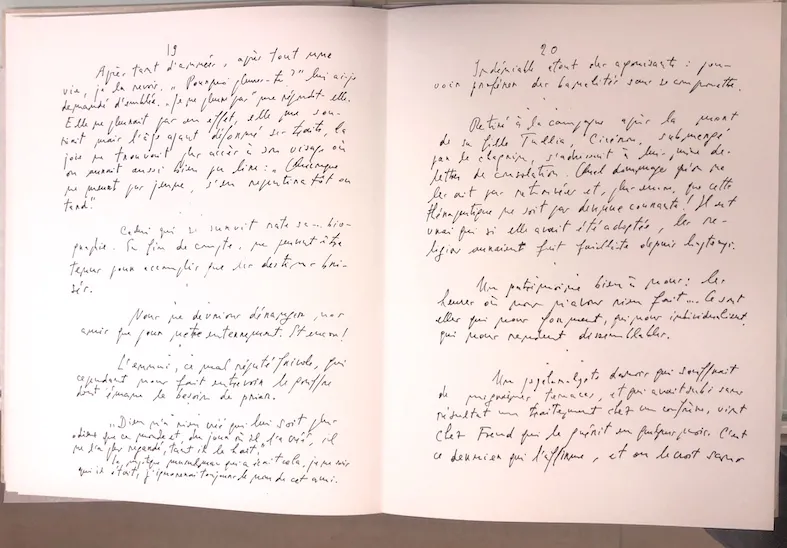 19
Après tant d'années, après toute une
vie, je la revois. „Pourquoi pleures-tu?" lui ai-je
demandé d'emblée. „Je ne pleure pas" me répondit-elle.
Elle ne pleurait pas en effet, elle me sou-
riait mais l'âge ayant déformé ses traits, la
joie ne trouvait plus accès à son visage où
on aurait aussi bien pu lire: „Quiconque
ne meurt pas jeune, s'en repentira tôt ou
tard."
Celui qui se survit rate sa... bio-
graphie. En fin de compte, ne peuvent être
tenus pour accomplis que des destins bri-
sés.
Nous ne devrions déranger nos
amis que pour notre enterrement. Et encore!
L'ennui, ce mal réputé frivole, qui
cependant nous fait entrevoir le gouffre
dont émane le besoin de prier.
„Dieu n'a rien créé qui lui soit plus
odieux que ce monde et, du jour où il l'a créé, il
ne l'a plus regardé, tant il le hait."
Le mystique musulman qui a écrit cela, je ne sais
qui il était, j'ignorerai toujours le nom de cet ami.
20
Indéniable atout des agonisants: pou-
voir proférer des banalités sans se compromettre.
Retiré à la campagne après la mort
de sa fille Tullia, Cicéron, submergé
par le chagrin, s'adressait à lui-même des
lettres de consolation. Quel dommage qu'on ne
les ait pas retrouvées et, plus encore, que cette
thérapeutique ne soit pas devenue courante! Il est
vrai que si elle avait été adoptée, les re-
ligions auraient fait faillite depuis longtemps.
Un patrimoine bien à nous: les
heures où nous n'avons rien fait... Ce sont
elles qui nous forment, qui nous individualisent,
qui nous rendent dissemblables.
Un psychanalyste danois qui souffrait
de migraines tenaces, et qui avait subi sans
résultat un traitement chez un confrère, vint
chez Freud qui le guérit en quelques mois. C'est
ce dernier qui l'affirme, et on le croit sans